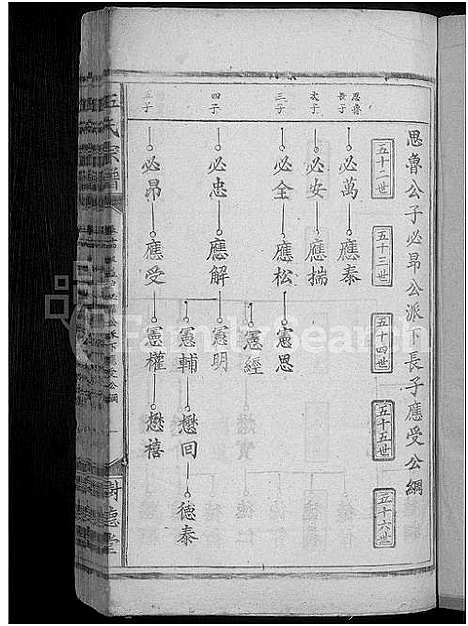 思魯公子必昂公派下長子應受公綱
五十二世
五十三世
五十四世
五十五世
五十六世
思魯
長子
必萬
應泰
次子
必安
應揣
三子
必全
應松
憲思
憲經
四子
必忠
應解
憲明
憲輔
懋回
德泰
五子
必昂
應受
憲權
懋禧
王氏宗譜
樹德堂
FamilySearch